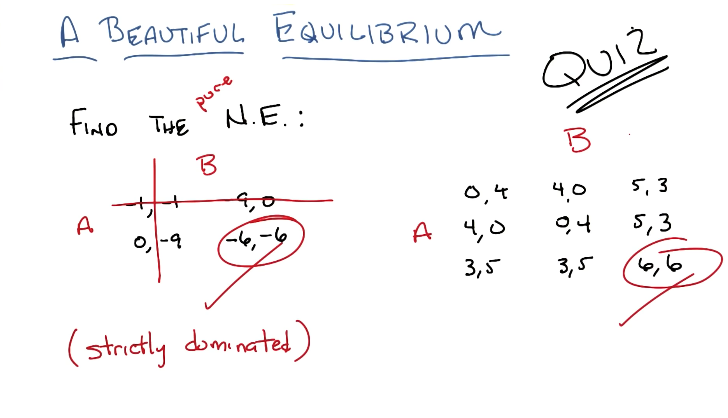 A BEAUTIFUL EQUILIBRIUM
QUIZ
FIND THE pure N.E.:
B
A
-1, -1 -9, 0
0, -9 -6, -6
(strictly dominated)
B
A
0, 4 4, 0 5, 3
4, 0 0, 4 5, 3
3, 5 3, 5 6, 6